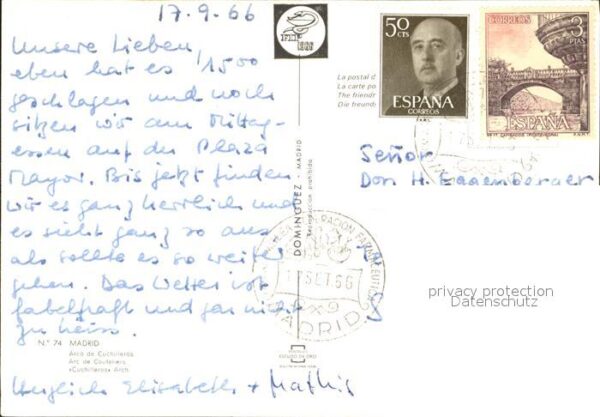 17.9.66
Unsere Lieben,
eben hat es 1500
geschlagen und noch
sitzen wir am Mittag-
essen auf der Plaza
Mayor. Bis jetzt finden
wir es ganz herrlich und
es sieht ganz so aus
als sollte es so weiter
gehen. Das Wetter ist
fabelhaft und gar nicht
zu heiss.
N.º 74 MADRID
Arco de Cuchilleros
Arc de Couteliers
«Cuchilleros» Arch
Herzlich Elisabeth + Mathis
DOMINGUEZ - MADRID
Reproducción prohibida
La postal d
La carte po
The friendl
Die freund
50
CTS
ESPAÑA
CORREOS
CORREOS
3
PTAS
ESPAÑA
Señor
Don H. Eggenberger
SET.66
MADRID
privacy protection
Datenschutz
ESCUDO DE ORO